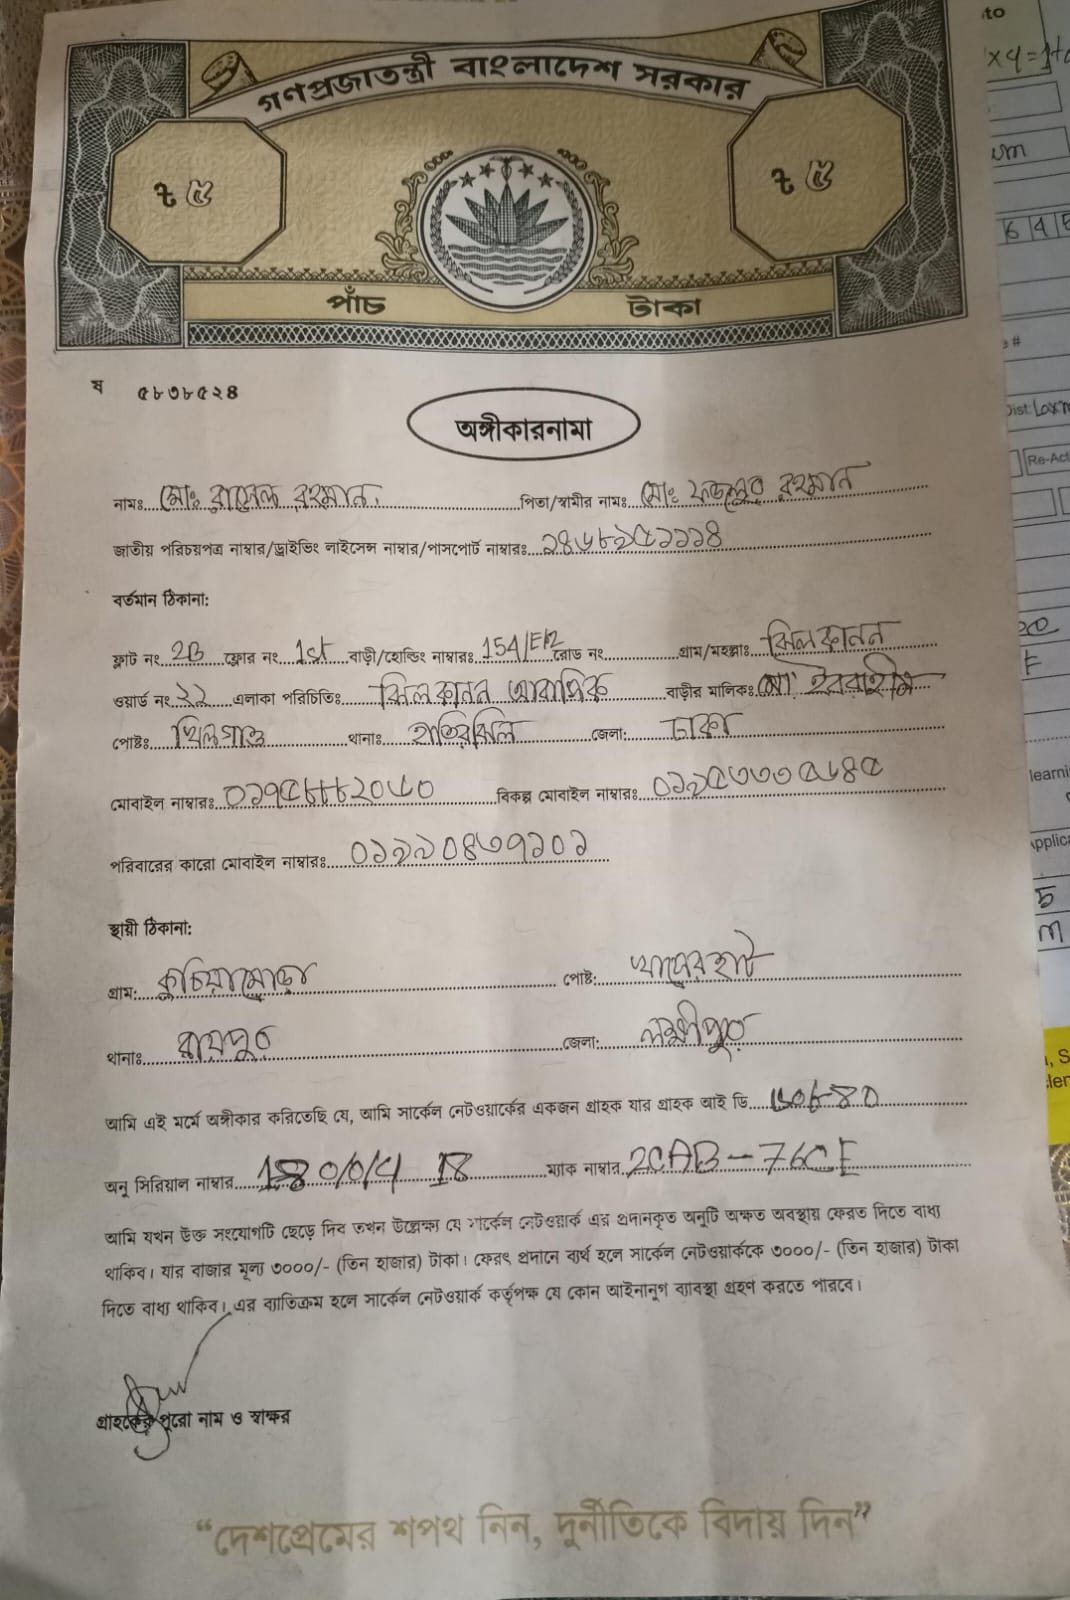 গণপ্রজাতন্ত্রী বাংলাদেশ সরকার
৳ ৫ ৳ ৫
পাঁচ টাকা
ষ ৫৮৩৮৫২৪
অঙ্গীকারনামা
নামঃ মোঃ রাসেল রহমান পিতা/স্বামীর নামঃ মোঃ ফজলুর রহমান
জাতীয় পরিচয়পত্র নাম্বার/ড্রাইভিং লাইসেন্স নাম্বার/পাসপোর্ট নাম্বারঃ
বর্তমান ঠিকানা:
ফ্লাট নং 2B ফ্লোর নং 1st বাড়ী/হোল্ডিং নাম্বারঃ 154/E/2 রোড নং গ্রাম/মহল্লাঃ ঝিলকানন
ওয়ার্ড নং ২২ এলাকা পরিচিতিঃ ঝিলকানন আবাসিক বাড়ীর মালিকঃ মো: ইবরাহীম
পোষ্টঃ খিলগাঁও থানাঃ হাতিরঝিল জেলা: ঢাকা
মোবাইল নাম্বারঃ বিকল্প মোবাইল নাম্বারঃ
পরিবারের কারো মোবাইল নাম্বারঃ
স্থায়ী ঠিকানা:
গ্রাম: কুচিয়ামোড়া পোষ্ট: খাসেরহাট
থানাঃ রায়পুর জেলা: লক্ষ্মীপুর
আমি এই মর্মে অঙ্গীকার করিতেছি যে, আমি সার্কেল নেটওয়ার্কের একজন গ্রাহক যার গ্রাহক আই ডি
অনু সিরিয়াল নাম্বার ম্যাক নাম্বার 2CAB-76CE
আমি যখন উক্ত সংযোগটি ছেড়ে দিব তখন উল্লেক্ষ্য যে সার্কেল নেটওয়ার্ক এর প্রদানকৃত অনুটি অক্ষত অবস্থায় ফেরত দিতে বাধ্য
থাকিব। যার বাজার মূল্য ৩০০০/- (তিন হাজার) টাকা। ফেরৎ প্রদানে ব্যর্থ হলে সার্কেল নেটওয়ার্ককে ৩০০০/- (তিন হাজার) টাকা
দিতে বাধ্য থাকিব। এর ব্যাতিক্রম হলে সার্কেল নেটওয়ার্ক কর্তৃপক্ষ যে কোন আইনানুগ ব্যাবস্থা গ্রহণ করতে পারবে।
গ্রাহকের পুরো নাম ও স্বাক্ষর
“দেশপ্রেমের শপথ নিন, দুর্নীতিকে বিদায় দিন”